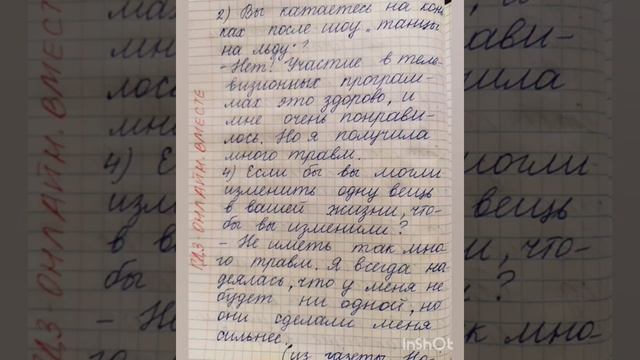 2) Вы катаетесь на конь
ках после шоу „танцы
на льду"?
- Нет! Участие в теле-
визионных програм-
мах это здорово, и
мне очень понрави-
лось. Но я получила
много травм.
4) Если бы вы могли
изменить одну вещь
в вашей жизни, что-
бы вы изменили?
- Не иметь так мно-
го травм. Я всегда на
деялась, что у меня не
будет ни одной, но
они сделали меня
сильнее.
(из газеты Но-
ГДЗ ОНЛАЙН. ВМЕСТЕ
InShOt